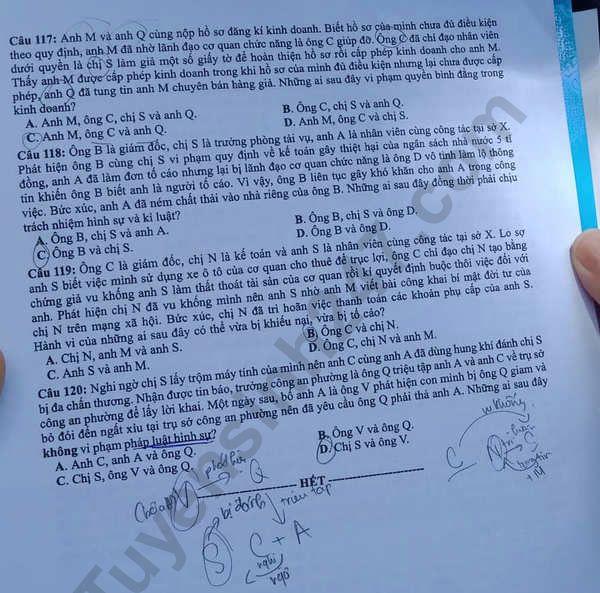 Câu 117: Anh M và anh Q cùng nộp hồ sơ đăng kí kinh doanh. Biết hồ sơ của mình chưa đủ điều kiện
theo quy định, anh M đã nhờ lãnh đạo cơ quan chức năng là ông C giúp đỡ. Ông C đã chỉ đạo nhân viên
dưới quyền là chị S làm giả một số giấy tờ để hoàn thiện hồ sơ rồi cấp phép kinh doanh cho anh M.
Thấy anh M được cấp phép kinh doanh trong khi hồ sơ của mình đủ điều kiện nhưng lại chưa được cấp
phép, anh Q đã tung tin anh M chuyên bán hàng giả. Những ai sau đây vi phạm quyền bình đẳng trong
kinh doanh?
A. Anh M, ông C, chị S và anh Q. B. Ông C, chị S và anh Q.
C. Anh M, ông C và anh Q. D. Anh M, ông C và chị S.
Câu 118: Ông B là giám đốc, chị S là trưởng phòng tài vụ, anh A là nhân viên cùng công tác tại sở X.
Phát hiện ông B cùng chị S vi phạm quy định về kế toán gây thiệt hại của ngân sách nhà nước 5 tỉ
đồng, anh A đã làm đơn tố cáo nhưng lại bị lãnh đạo cơ quan chức năng là ông D vô tình làm lộ thông
tin khiến ông B biết anh là người tố cáo. Vì vậy, ông B liên tục gây khó khăn cho anh A trong công
việc. Bức xúc, anh A đã ném chất thải vào nhà riêng của ông B. Những ai sau đây đồng thời phải chịu
trách nhiệm hình sự và kỉ luật?
A. Ông B, chị S và anh A. B. Ông B, chị S và ông D.
C. Ông B và chị S. D. Ông B và ông D.
Câu 119: Ông C là giám đốc, chị N là kế toán và anh S là nhân viên cùng công tác tại sở X. Lo sợ
anh S biết việc mình sử dụng xe ô tô của cơ quan cho thuê để trục lợi, ông C chỉ đạo chị N tạo bằng
chứng giả vu khống anh S làm thất thoát tài sản của cơ quan rồi kí quyết định buộc thôi việc đối với
anh. Phát hiện chị N đã vu khống mình nên anh S nhờ anh M viết bài công khai bí mật đời tư của
chị N trên mạng xã hội. Bức xúc, chị N đã trì hoãn việc thanh toán các khoản phụ cấp của anh S.
Hành vi của những ai sau đây có thể vừa bị khiếu nại, vừa bị tố cáo?
A. Chị N, anh M và anh S. B. Ông C và chị N.
C. Anh S và anh M. D. Ông C, chị N và anh M.
Câu 120: Nghi ngờ chị S lấy trộm máy tính của mình nên anh C cùng anh A đã dùng hung khí đánh chị S
bị đa chấn thương. Nhận được tin báo, trưởng công an phường là ông Q triệu tập anh A và anh C về trụ sở
công an phường để lấy lời khai. Một ngày sau, bố anh A là ông V phát hiện con mình bị ông Q giam và
bỏ đói đến ngất xỉu tại trụ sở công an phường nên đã yêu cầu ông Q phải thả anh A. Những ai sau đây
không vi phạm pháp luật hình sự?
A. Anh C, anh A và ông Q. B. Ông V và ông Q.
C. Chị S, ông V và ông Q. D. Chị S và ông V.
HẾT
V Q
bị đánh
triệu tập
S C + A
nghi
ngờ
C N
vu khống